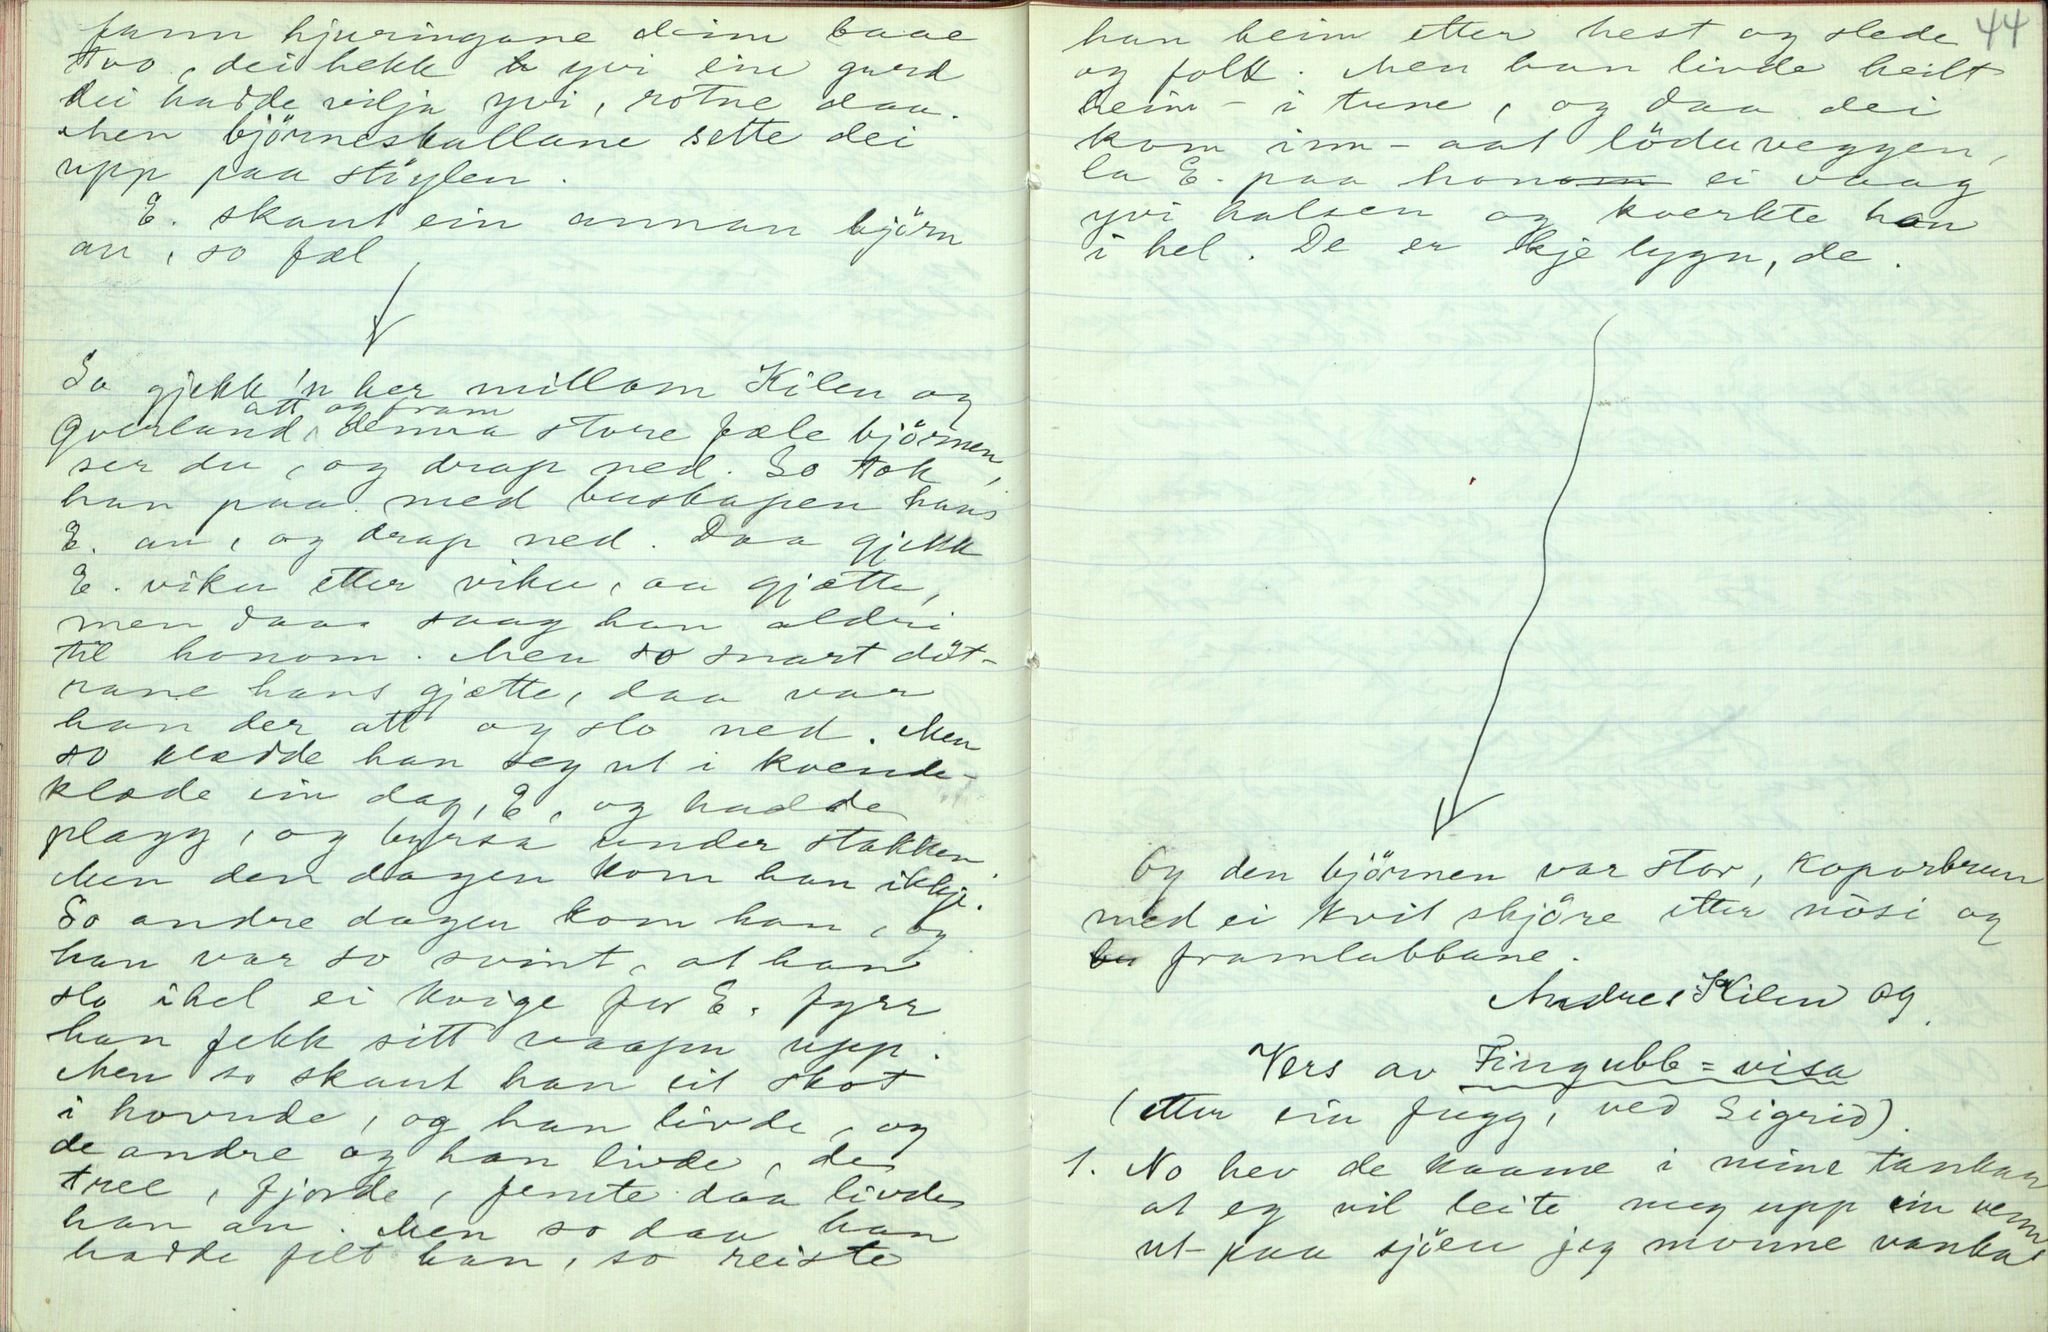 fann hjuringane deim baae
tvo, dei hekk yvi eine gard
dei hadde vilja yvi, rotne daa.
Men björneskallane sette dei
upp paa stöylen.
E. skaut ein annan björn
an, so fæl
So gjekk 'n her millom Kilen og
att og fram
Qverland, denna store fæle björnen,
ser du, og drap ned. So tok
han paa med buskapen hans
E. an, og drap ned. Daa gjekk
E. viku etter viku, aa gjætte,
men daa saag han aldri
til honom. Men so snart döt-
rane hans gjætte, daa var
han der att og slo ned. Men
so klædde han seg ut i kvende-
klæde ein dag, E, og hadde
plagg, og byrsa under stakken.
Men den dagen kom han ikkje.
So andre dagen kom han, og
han var so svint, at han
slo ihel ei kvige for E. fyrr
han fekk sitt vaapen upp.
Men so skaut han eit skot
i hovude, og han livde, og
de andre og han livde, de
tree, fjorde, femte daa livde
han an. Men so daa han
hadde felt han, so reiste
44
han heim etter hest og slede
og folk. Men han livde heilt
heim - i tune, og daa dei
kom inn-aat löduveggen,
la E. paa honom ei vaag
yvi halsen og kverkte han
i hel. De er kje lygn, de.
Og den björnen var stor, koparbrun
med ei kvit skjöre etter nosi og
framlabbane.
Andres Kilen og
Vers av Fingubb=visa
(etter ein fugg, ved Sigrid).
1. No hev de kaame i mine tankar
at eg vil leite meg upp ein venn
ut-paa sjöen jeg monne vanka